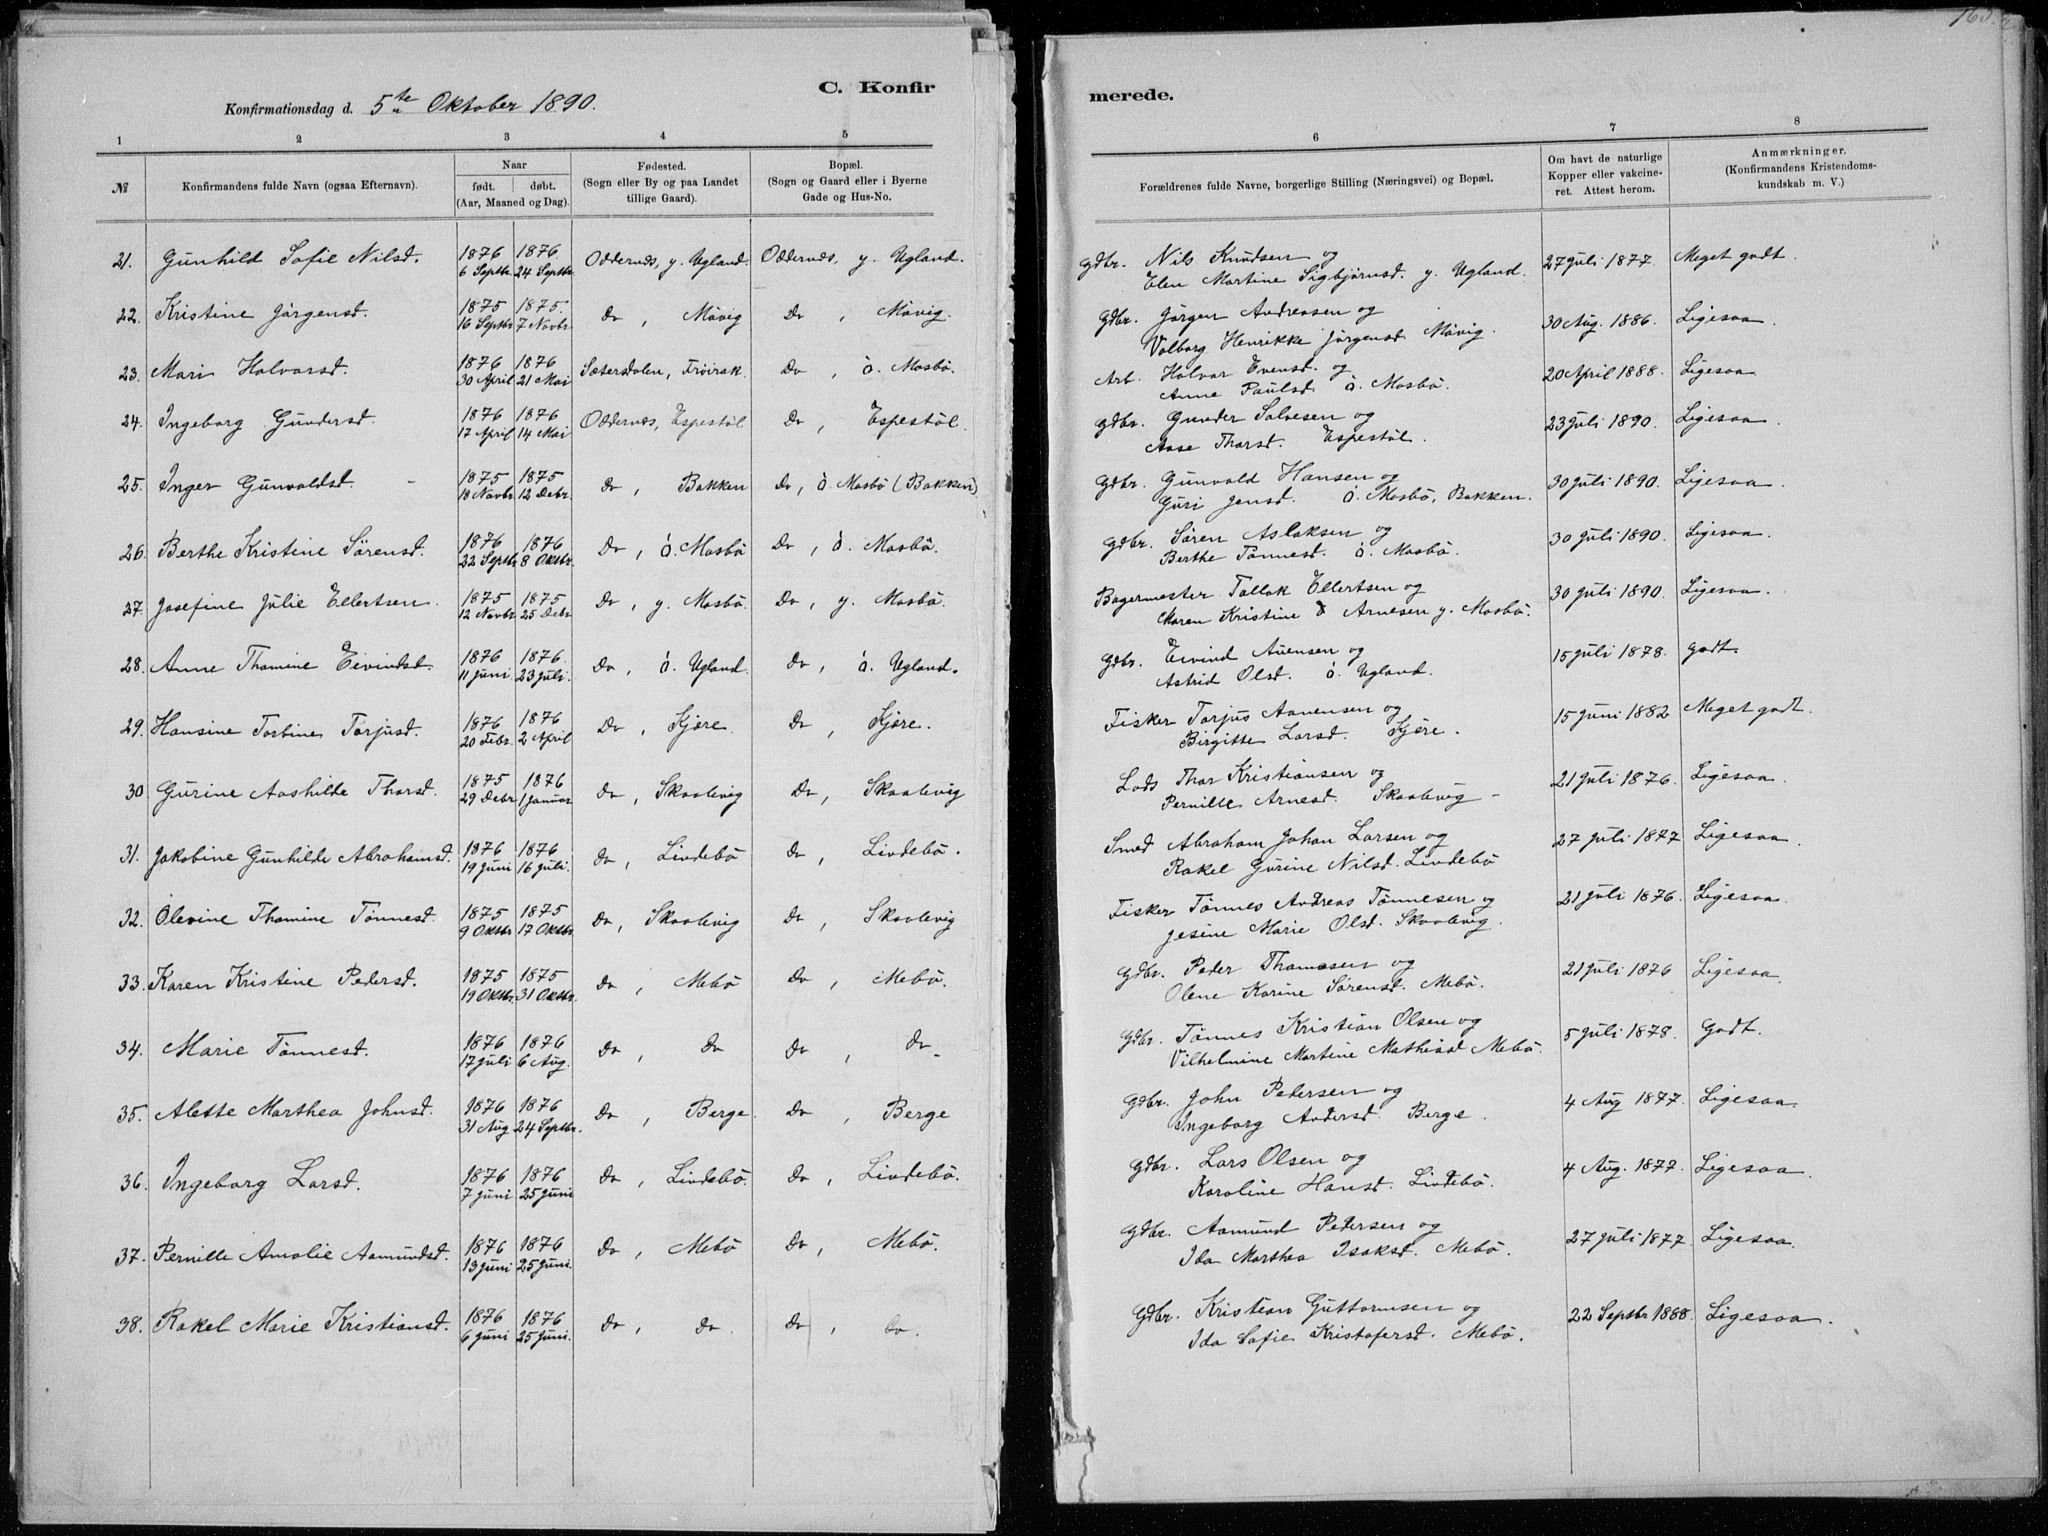 163.
C. Konfir
merede.
Konfirmationsdag d. 5te Oktober 1890.
1 2 3 4 5 6 7 8
№ Konfirmandens fulde Navn (ogsaa Efternavn). Naar født. døbt. (Aar, Maaned og Dag). Fødested. (Sogn eller By og paa Landet tillige Gaard). Bopæl. (Sogn og Gaard eller i Byerne Gade og Hus-No. Forældrenes fulde Navne, borgerlige Stilling (Næringsvei) og Bopæl. Om havt de naturlige Kopper eller vakcineret. Attest herom. Anmærkninger. (Konfirmandens Kristendomskundskab m. V.)
21. Gunhild Sofie Nilsd. 1876 6 Septbr. 1876 24 Septbr. Oddernæs, y. Ugland. Oddernæs, y. Ugland. Gdbr. Nils Knudsen og 27 Juli 1877. Meget godt.
Elen Martine Sigbjørnsd. y. Ugland.
22. Kristine Jörgensd. 1875 16 Septbr. 1875. 7 Novbr. Do, Måvig Do, Måvig. Gdbr. Jörgen Andreasen og 30 Aug. 1886. Ligesaa.
Valborg Henrikke Jörgensd. Måvig.
23. Mari Halvorsd. 1876 30 April 1876 21 Mai Sætersdalen, Frøirak. Do, ö. Mosbö. Arb. Halvor Evensd. og 20 April 1888. Ligesaa
Anne Paulsd. ö. Mosbö.
24. Ingeborg Gundersd. 1876 17 April 1876 14 Mai Oddernæs, Espestöl Do, Espestöl. Gdbr. Gunder Salvesen og 23 Juli 1890. Ligesaa.
Aase Thorsd. Espestöl.
25. Inger Gunvaldsd. 1875 18 Novbr. 1875 12 Debr. Do, Bakken Do, ö. Mosbö (Bakken) Gdbr. Gunvald Hansen og 30 Juli 1890. Ligesaa.
Guri Jensd. ö. Mosbö, Bakken.
26. Berthe Kristine Sörensd. 1876 22 Septbr. 1876 8 Oktbr. Do, ö. Mosbö Do, ö. Mosbö. Gdbr. Sören Aslaksen og 30 Juli 1890. Ligesaa.
Berthe Tönnesd. ö. Mosbö.
27. Josefine Julie Ellertsen. 1875 12 Novbr. 1875 25 Debr. Do, y. Mosbö. Do, y. Mosbö. Bagermester Tallak Ellertsen og 30 Juli 1890. Ligesaa.
Maren Kristine Arnesen y. Mosbö.
28. Anne Thomine Eivindsd. 1876 11 Juni 1876. 23 Juli. Do, ö. Ugland. Do, ö. Ugland. Gdbr. Eivind Auensen og 15 Juli 1878. godt.
Astrid Olsd. ö. Ugland.
29. Hansine Torbine Torjusd. 1876 20 Febr. 1876 2 April Do, Kjøre. Do, Kjøre. Fisker Torjus Aanensen og 15 Juni 1882 Meget godt.
Birgitte Larsd. Kjøre.
30. Gurine Aashilde Thorsd. 1875 29 Debr 1876 1 Januar Do, Skaalevig Do, Skaalevig Lods Thor Kristiansen og 21 Juli 1876. Ligesaa.
Pernille Arnesd. Skaalevig
31. Jakobine Gunhilde Abrahamsd. 1876 19 Juni 1876 16 Juli. Do, Lindebö Do, Lindebö. Smed Abraham Johan Larsen og 27 Juli 1877 Ligesaa.
Rakel Gurine Nilsd. Lindebö
32. Olevine Thomine Tönnesd. 1875 9 Oktbr. 1875 17 Oktbr. Do, Skaalevig Do, Skaalevig Fisker Tönnes Andreas Tönnesen og 21 Juli 1876. Ligesaa.
Jesine Marie Olsd. Skaalevig.
33. Karen Kristine Pedersd. 1875 19 Oktbr. 1875 31 Oktbr. Do, Mebö Do, Mebö. Gdbr. Peder Thomasen og 21 Juli 1876 Ligesaa.
Olene Karine Sörensd. Mebö.
34. Marie Tönnesd. 1876 17 Juli 1876 6 Aug. Do, Do Do, Do Gdbr. Tönnes Kristian Olsen og 5 Juli 1878. Godt.
Vilhelmine Martine Mathiasd Mebö.
35. Alette Marthea Johnsd. 1876 31 Aug 1876 24 Septbr. Do, Berge. Do, Berge Gdbr. John Petersen og 4 Aug 1877. Ligesaa.
Ingeborg Andersd. Berge.
36. Ingeborg Larsd. 1876 7 Juni 1876 25 Juni Do, Lindebö. Do, Lindebö. Gdbr. Lars Olsen og 4 Aug. 1877. Ligesaa.
Karoline Hansd. Lindebö.
37. Pernille Amalie Aamundsd. 1876 13 Juni 1876 25 Juni. Do, Mebö Do, Mebö. Gdbr. Aamund Petersen og 27 Juli 1877. Ligesaa.
Ida Marthea Isaksd. Mebö.
38. Rakel Marie Kristiansd. 1876 6 Juni 1876 25 Juni. Do, Do Do, Do. Gdbr. Kristian Guttormsen og 22 Septbr 1888. Ligesaa.
Ida Sofie Kristofersd. Mebö.